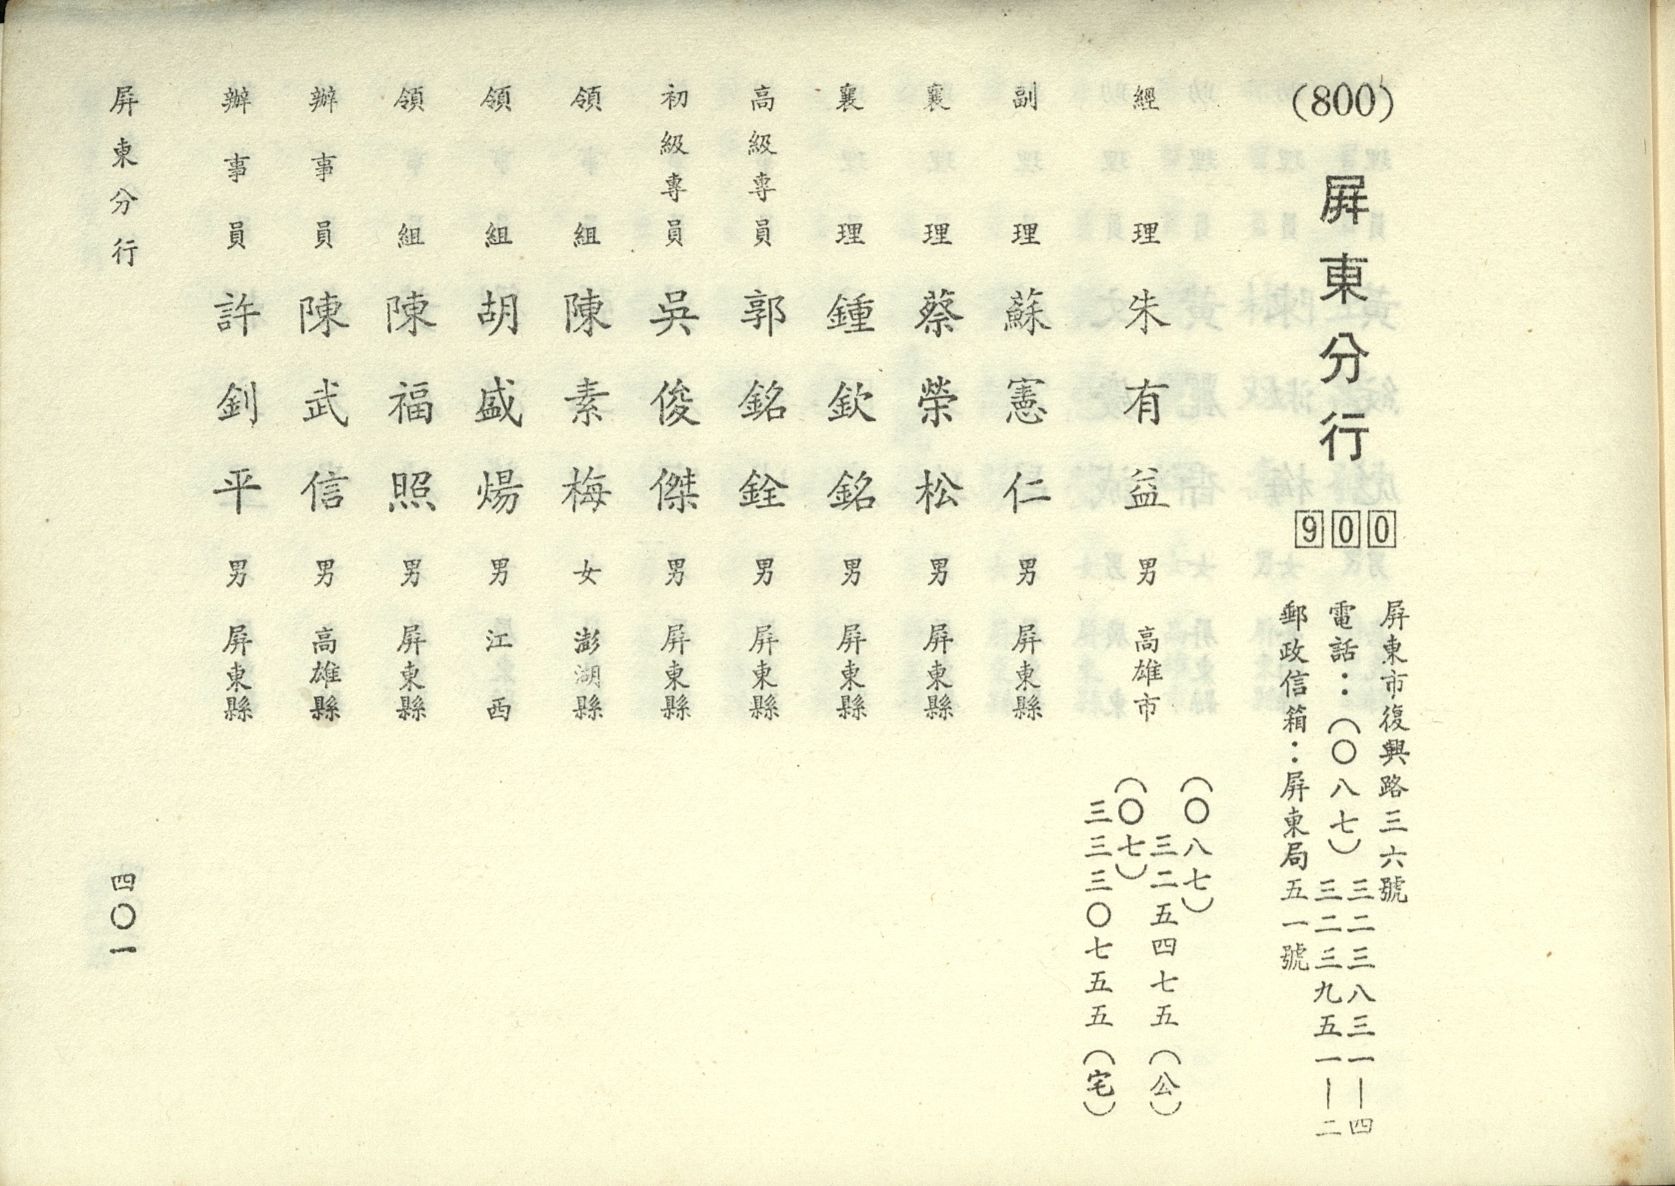 (800)
屏東分行
900
屏東市復興路三六號
電話：（〇八七）三二三八三一—四
三二三九五一—二
郵政信箱：屏東局五一號
經理 朱有益 男 高雄市
（〇八七）
三二五四七五（公）
（〇七）
三三三〇七五五（宅）
副理 蘇憲仁 男 屏東縣
襄理 蔡榮松 男 屏東縣
襄理 鍾欽銘 男 屏東縣
高級專員 郭銘銓 男 屏東縣
初級專員 吳俊傑 男 屏東縣
領組 陳素梅 女 澎湖縣
領組 胡盛煬 男 江西
領組 陳福照 男 屏東縣
辦事員 陳武信 男 高雄縣
辦事員 許釗平 男 屏東縣
屏東分行
四〇一